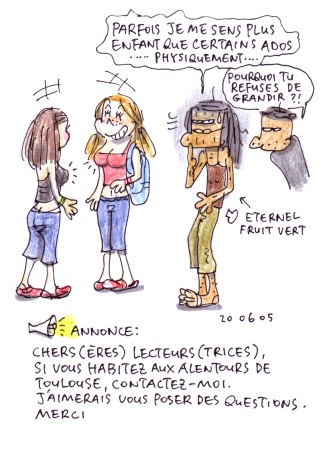 PARFOIS JE ME SENS PLUS
ENFANT QUE CERTAINS ADOS
..... PHYSIQUEMENT....
POURQUOI TU
REFUSES DE
GRANDIR ?!
ETERNEL
FRUIT VERT
20 06 05
ANNONCE:
CHERS(ÈRES) LECTEURS(TRICES),
SI VOUS HABITEZ AUX ALENTOURS DE
TOULOUSE, CONTACTEZ-MOI.
J'AIMERAIS VOUS POSER DES QUESTIONS.
MERCI